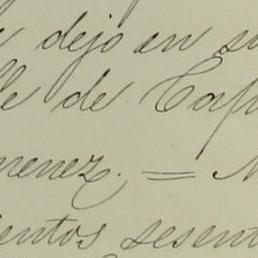 dejo en su
lle de Cap
menez. = 
ientos sesent